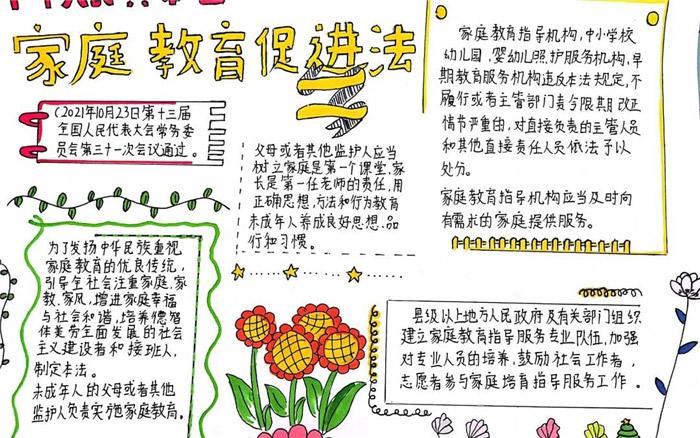 家庭教育促进法
(2021年10月23日第十三届
全国人民代表大会常务委
员会第三十一次会议通过。
父母或者其他监护人应当
树立家庭是第一个课堂、家
长是第一任老师的责任,用
正确思想、方法和行为教育
未成年人养成良好思想、品
行和习惯。
家庭教育指导机构,中小学校
幼儿园,婴幼儿照护服务机构,早
期教育服务机构违反本法规定,不
履行或者主管部门责令限期改正
情节严重的,对直接负责的主管人员
和其他直接责任人员依法予以
处分。
家庭教育指导机构应当及时向
有需求的家庭提供服务。
为了发扬中华民族重视
家庭教育的优良传统,
引导全社会注重家庭、家
教、家风,增进家庭幸福
与社会和谐,培养德智
体美劳全面发展的社会
主义建设者和接班人,
制定本法。
未成年人的父母或者其他
监护人负责实施家庭教育。
县级以上地方人民政府及有关部门组织
建立家庭教育指导服务专业队伍,加强
对专业人员的培养,鼓励社会工作者,
志愿者参与家庭培育指导服务工作。